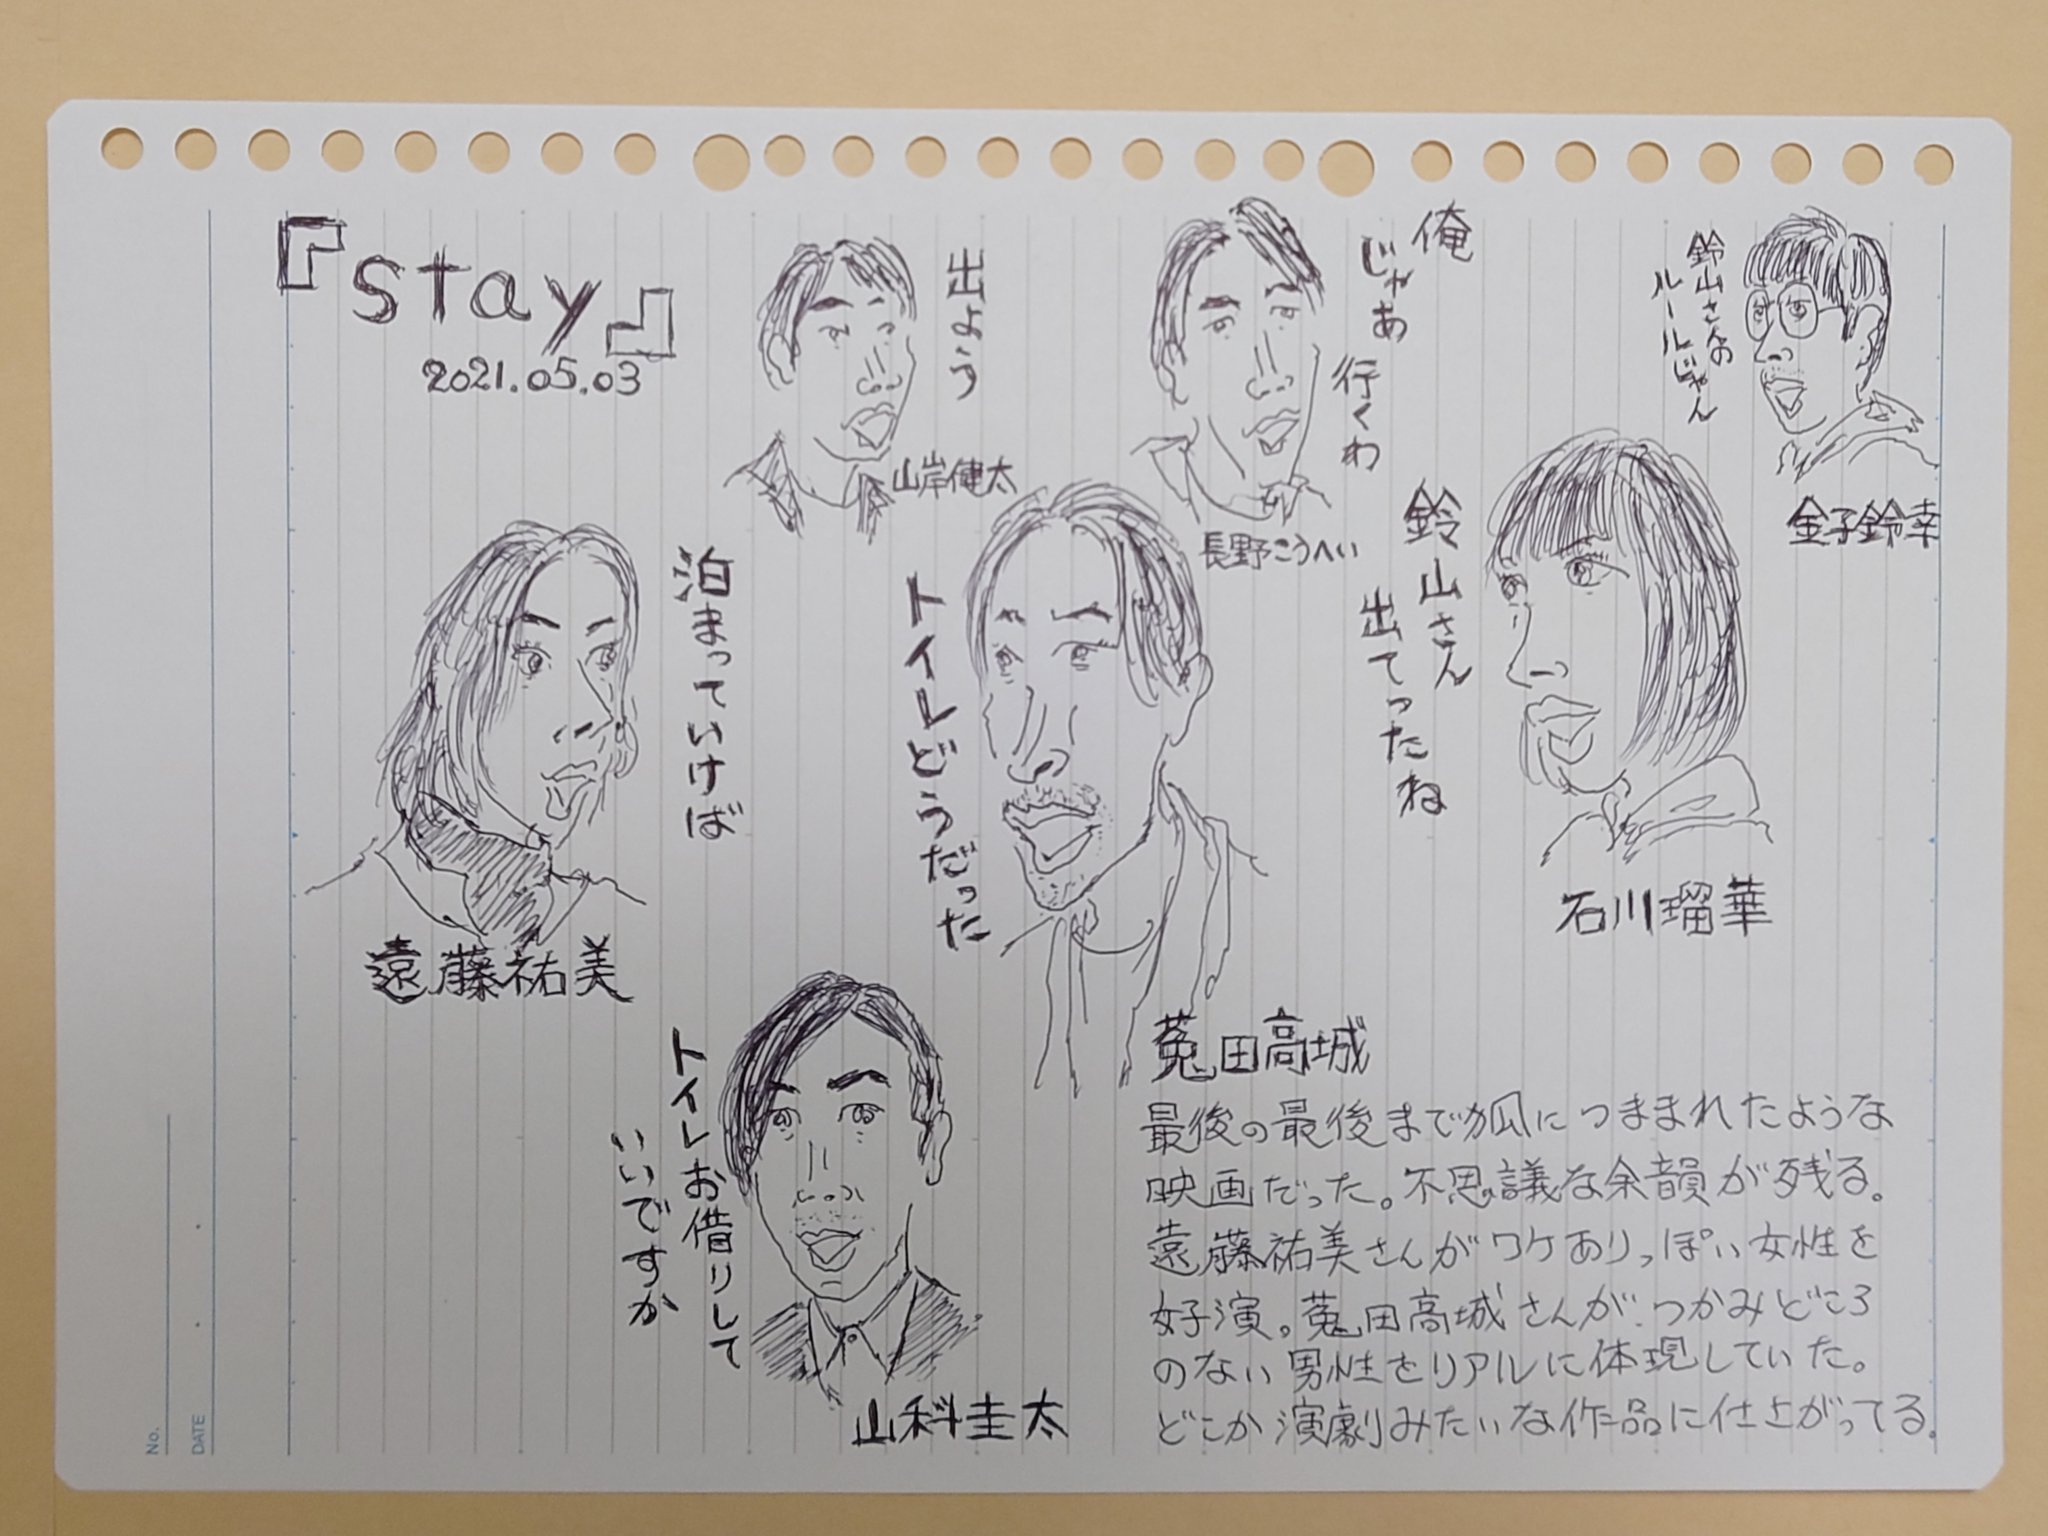 『stay』
2021.05.03
出よう
山岸健太
俺
じゃあ
行くわ
長野こうへい
鈴山さんの
ルールじゃん
金子鈴幸
泊まっていけば
遠藤祐美
トイレどうだった
菟田高城
鈴山さん
出てったね
石川瑠華
トイレお借りして
いいですか
山科圭太
最後の最後まで狐につままれたような
映画だった。不思議な余韻が残る。
遠藤祐美さんがワケありっぽい女性を
好演。菟田高城さんが、つかみどころ
のない男性をリアルに体現していた。
どこか演劇みたいな作品に仕上がってる。
No.
DATE